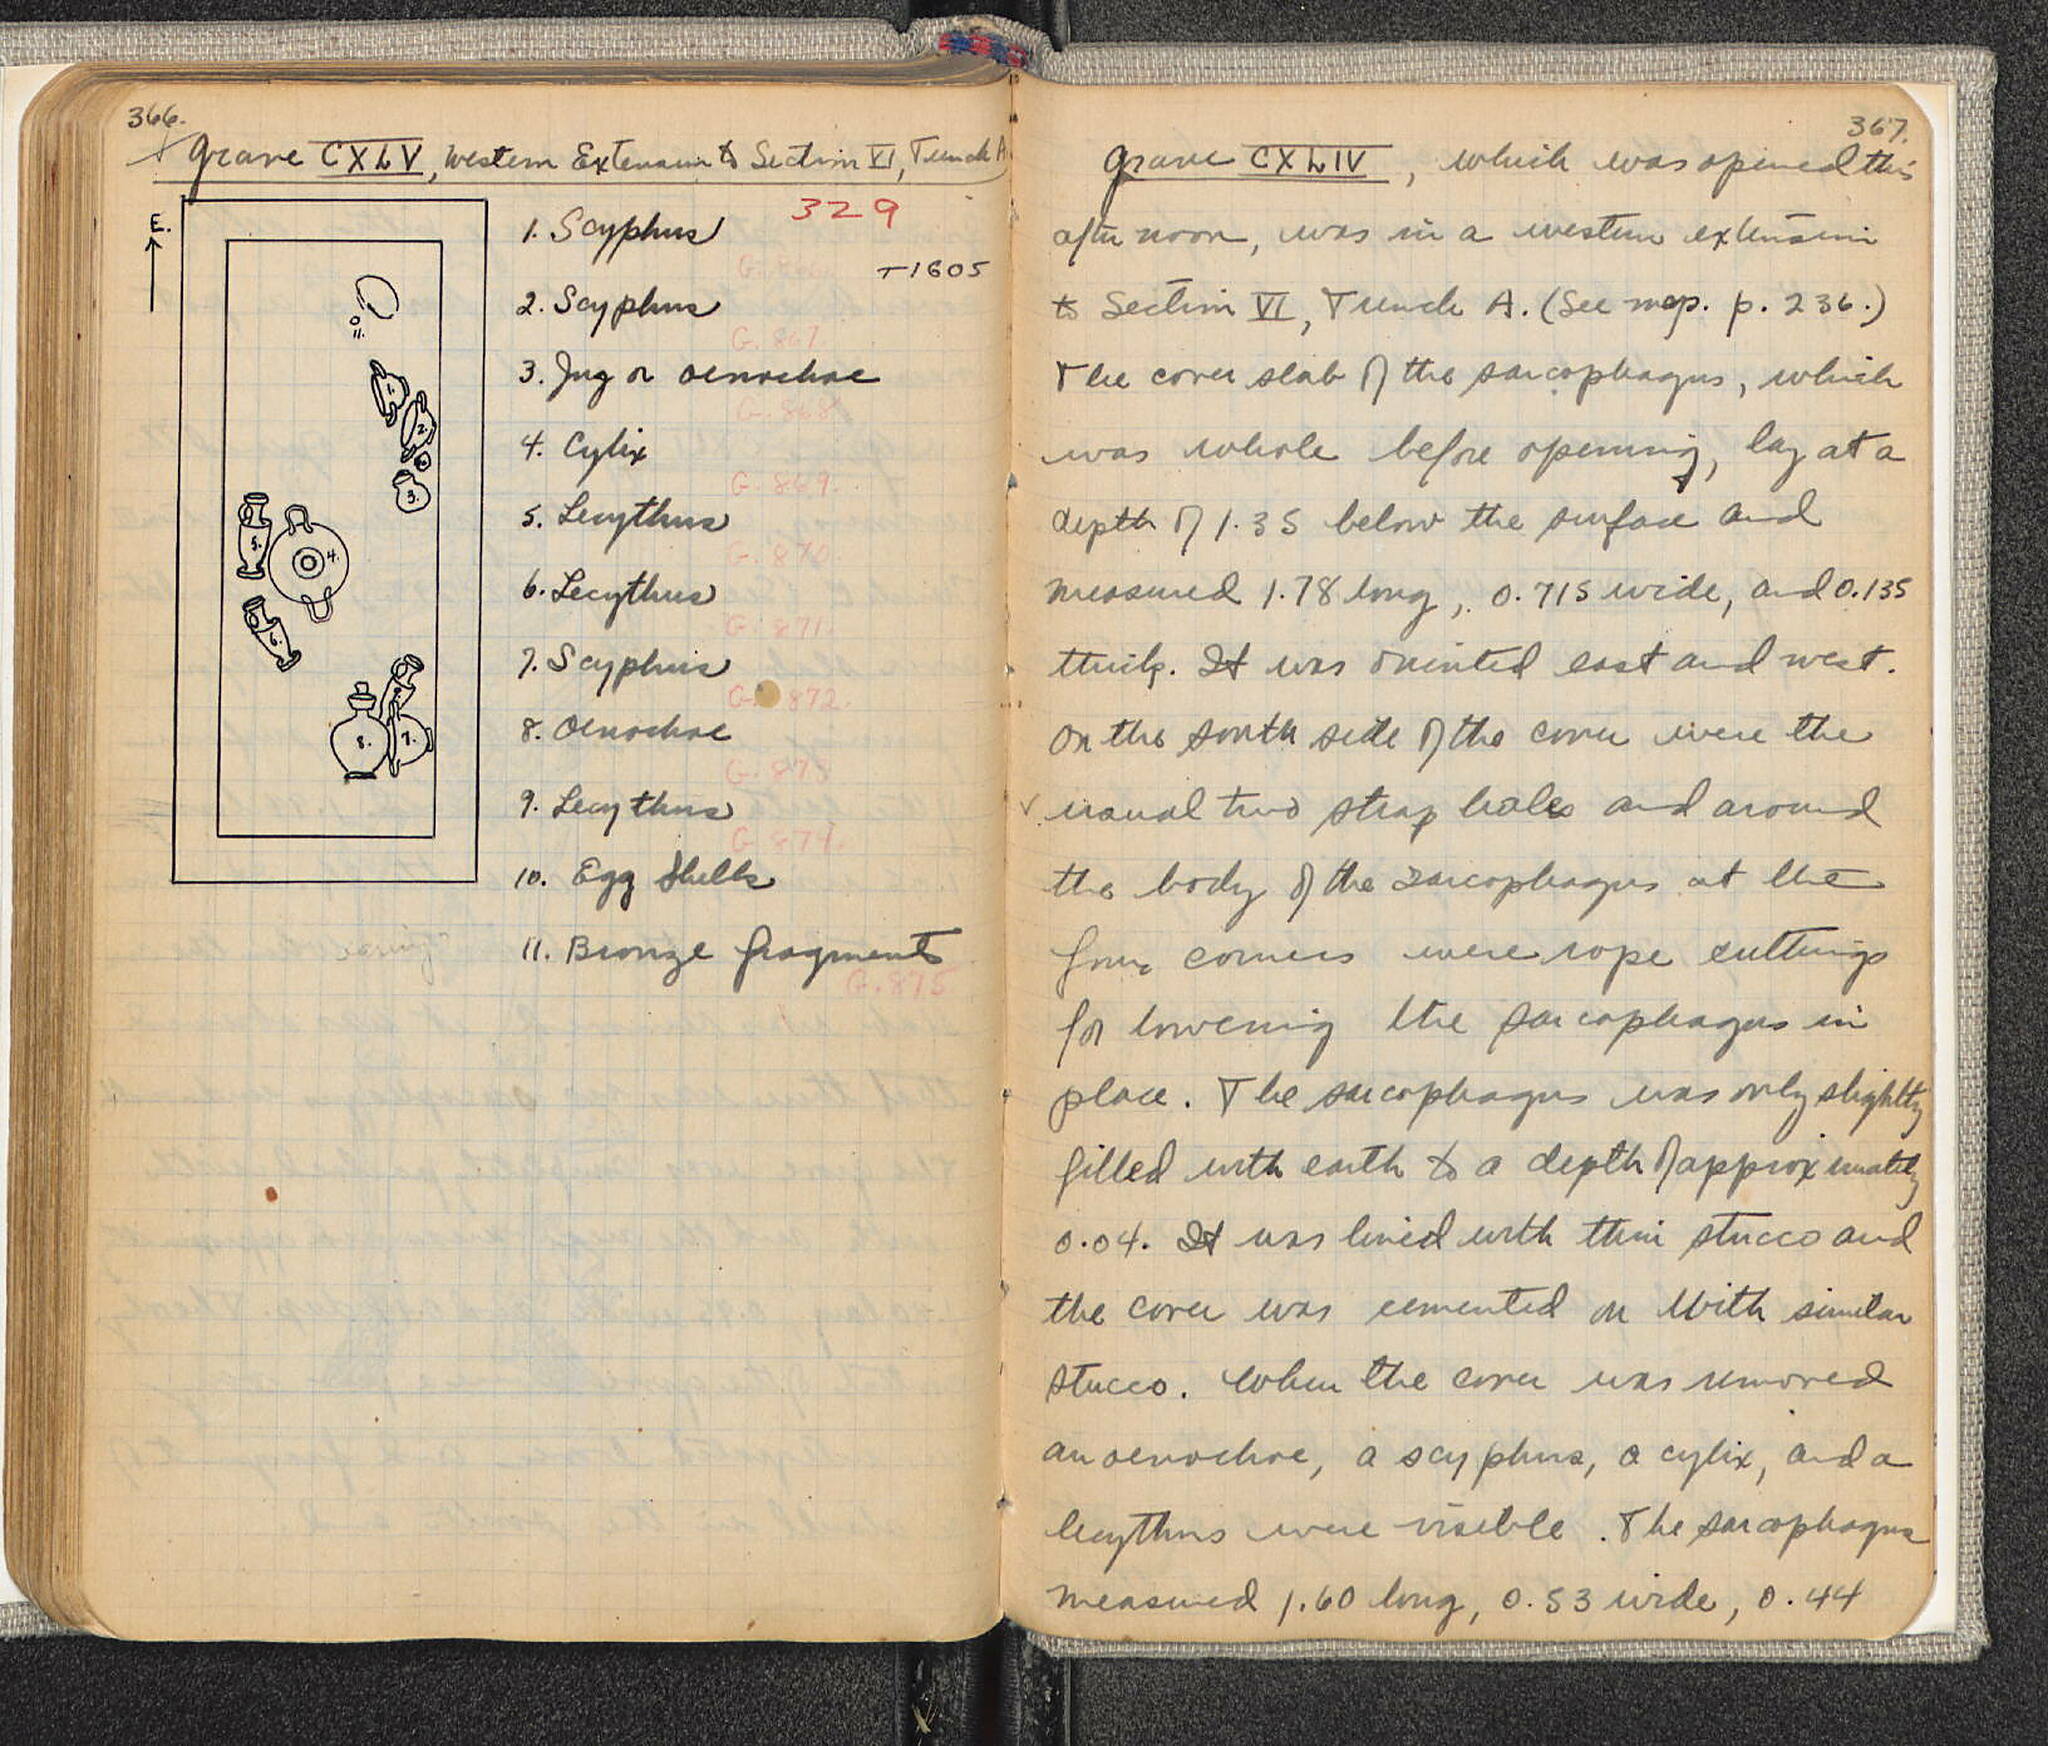 366.
Grave CXLV, Western Extension to Section VI, Trench A
329
E.
1. Scyphus
G. 866.
T1605
2. Scyphus
G. 867.
3. Jug or oenochoe
G. 868
4. Cylix
G. 869.
5. Lecythus
G. 870.
6. Lecythus
G. 871.
7. Scyphus
G. 872.
8. Oenochoe
G. 873
9. Lecythus
G. 874.
10. Egg Shells
11. Bronze fragments
G. 875
11.
1.
2.
3.
5.
4.
6.
9.
8.
7.
367.
Grave CXLIV, which was opened this
afternoon, was in a western extension
to Section VI, Trench A. (See map. p. 236.)
The cover slab of the sarcophagus, which
was whole before opening, lay at a
depth of 1.35 below the surface and
measured 1.78 long, 0.715 wide, and 0.135
thick. It was oriented east and west.
On the south side of the cover were the
usual two strap holes and around
the body of the sarcophagus at the
four corners were rope cuttings
for lowering the sarcophagus in
place. The sarcophagus was only slightly
filled with earth to a depth of approximately
0.04. It was lined with thin stucco and
the cover was cemented on with similar
stucco. When the cover was removed
an oenochoe, a scyphus, a cylix, and a
lecythus were visible. The sarcophagus
measured 1.60 long, 0.53 wide, 0.44